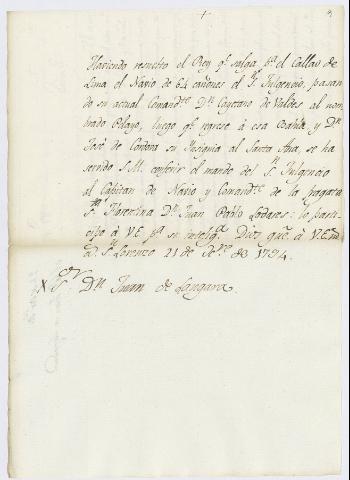 Haviendo resuelto el Rey qᵉ salga pᵃ el Callao de
Lima el Navio de 64 cañones el Sⁿ Fulgencio, pasan
do su actual Comandᵗᵉ Dⁿ Cayetano de Valdes al nom
brado Pelayo, luego qᵉ regrese á esa Bahia y Dⁿ
José de Cordova su Insignia al Santa Ana, se ha
servido S.M. conferir el mando del Sⁿ Fulgencio
al Capitan de Navio y Comandᵗᵉ de la fragata
Sᵗᵃ Florentina Dⁿ Juan Pablo Lodares: lo parti-
cipo á V.E. pᵃ su inteligᵃ Dios gᵘᵉ á V.E. mˢ
aˢ Sⁿ Lorenzo 21 de Novʳᵉ de 1794.
X Sᵒʳ Dⁿ Juan de Langara.